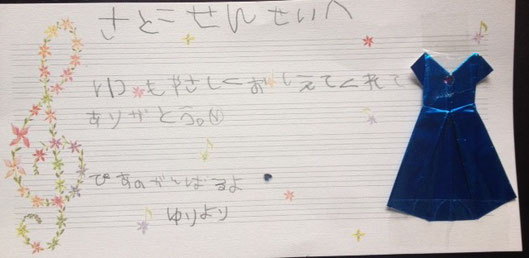 さとこせんせいへ
いつもやさしくおしえてくれて
ありがとう。
ぴあのがんばるよ
ゆりより